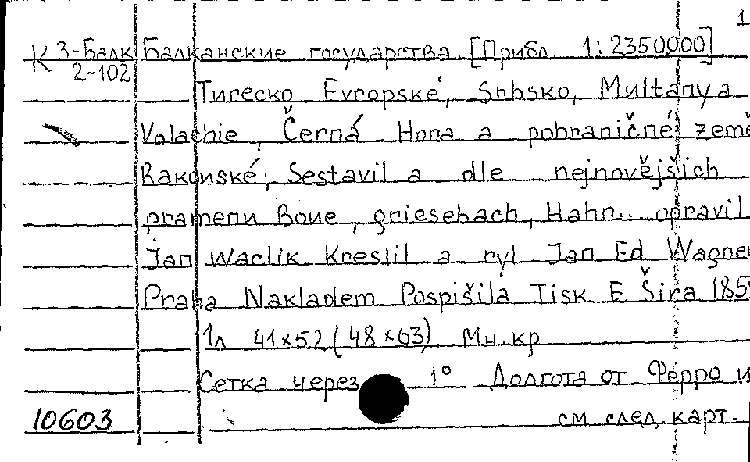 1
К 3-Балк Балканские государства. [Прибл. 1:2350000]
2-102
Turecko Evropské, Srbsko, Multanya
Valachie, Černá Hora a pohraničné země
Rakouské, Sestavil a dle nejnovějších
pramenu Boue, griesebach, Hahn.. opravil
Jan Waclik Kreslil a ryl Jan Ed Wagner
Praha Nakladem Pospišila Tisk E Šira 185
1л 41×52 (48×63) Мн.кр
Сетка через 1° Долгота от Ферро и
10603 см. след. карт.